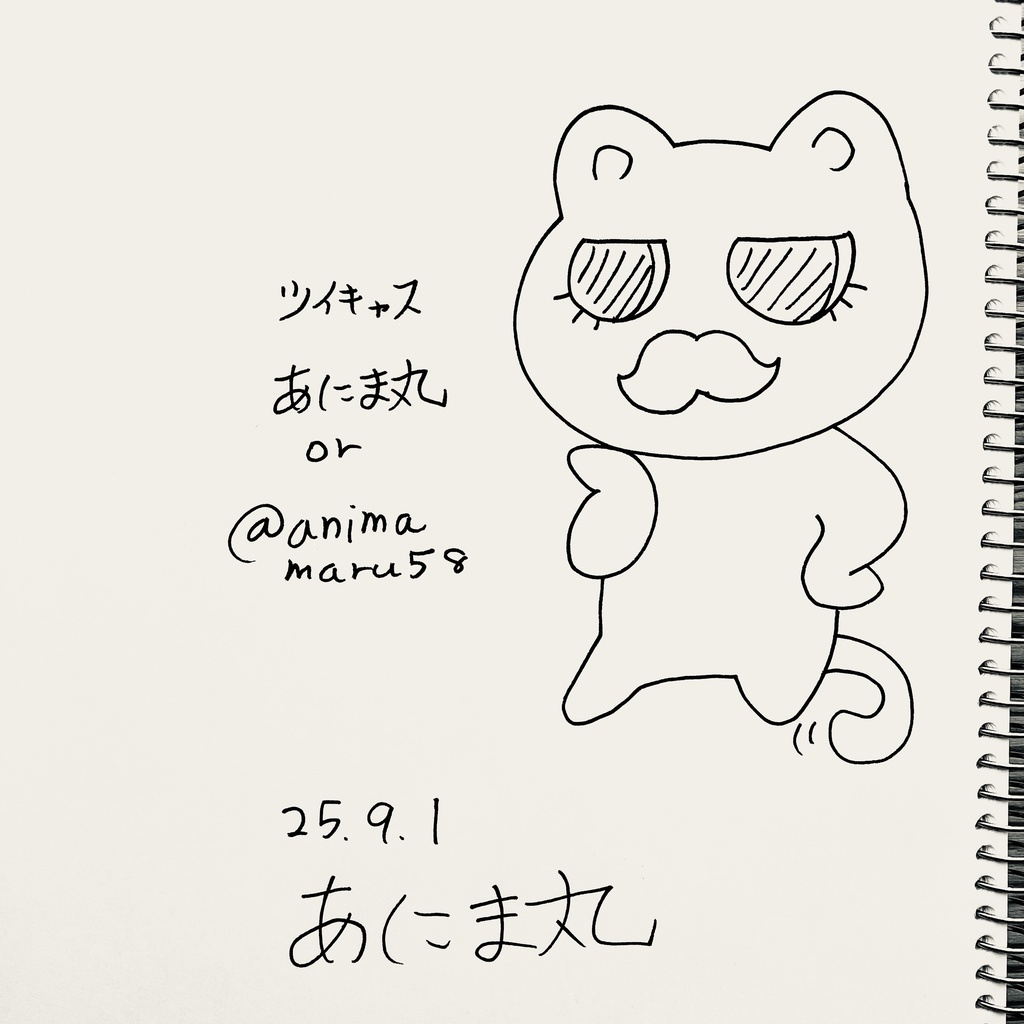 ツイキャス
あにま丸
or
@anima
maru58
25.9.1
あにま丸